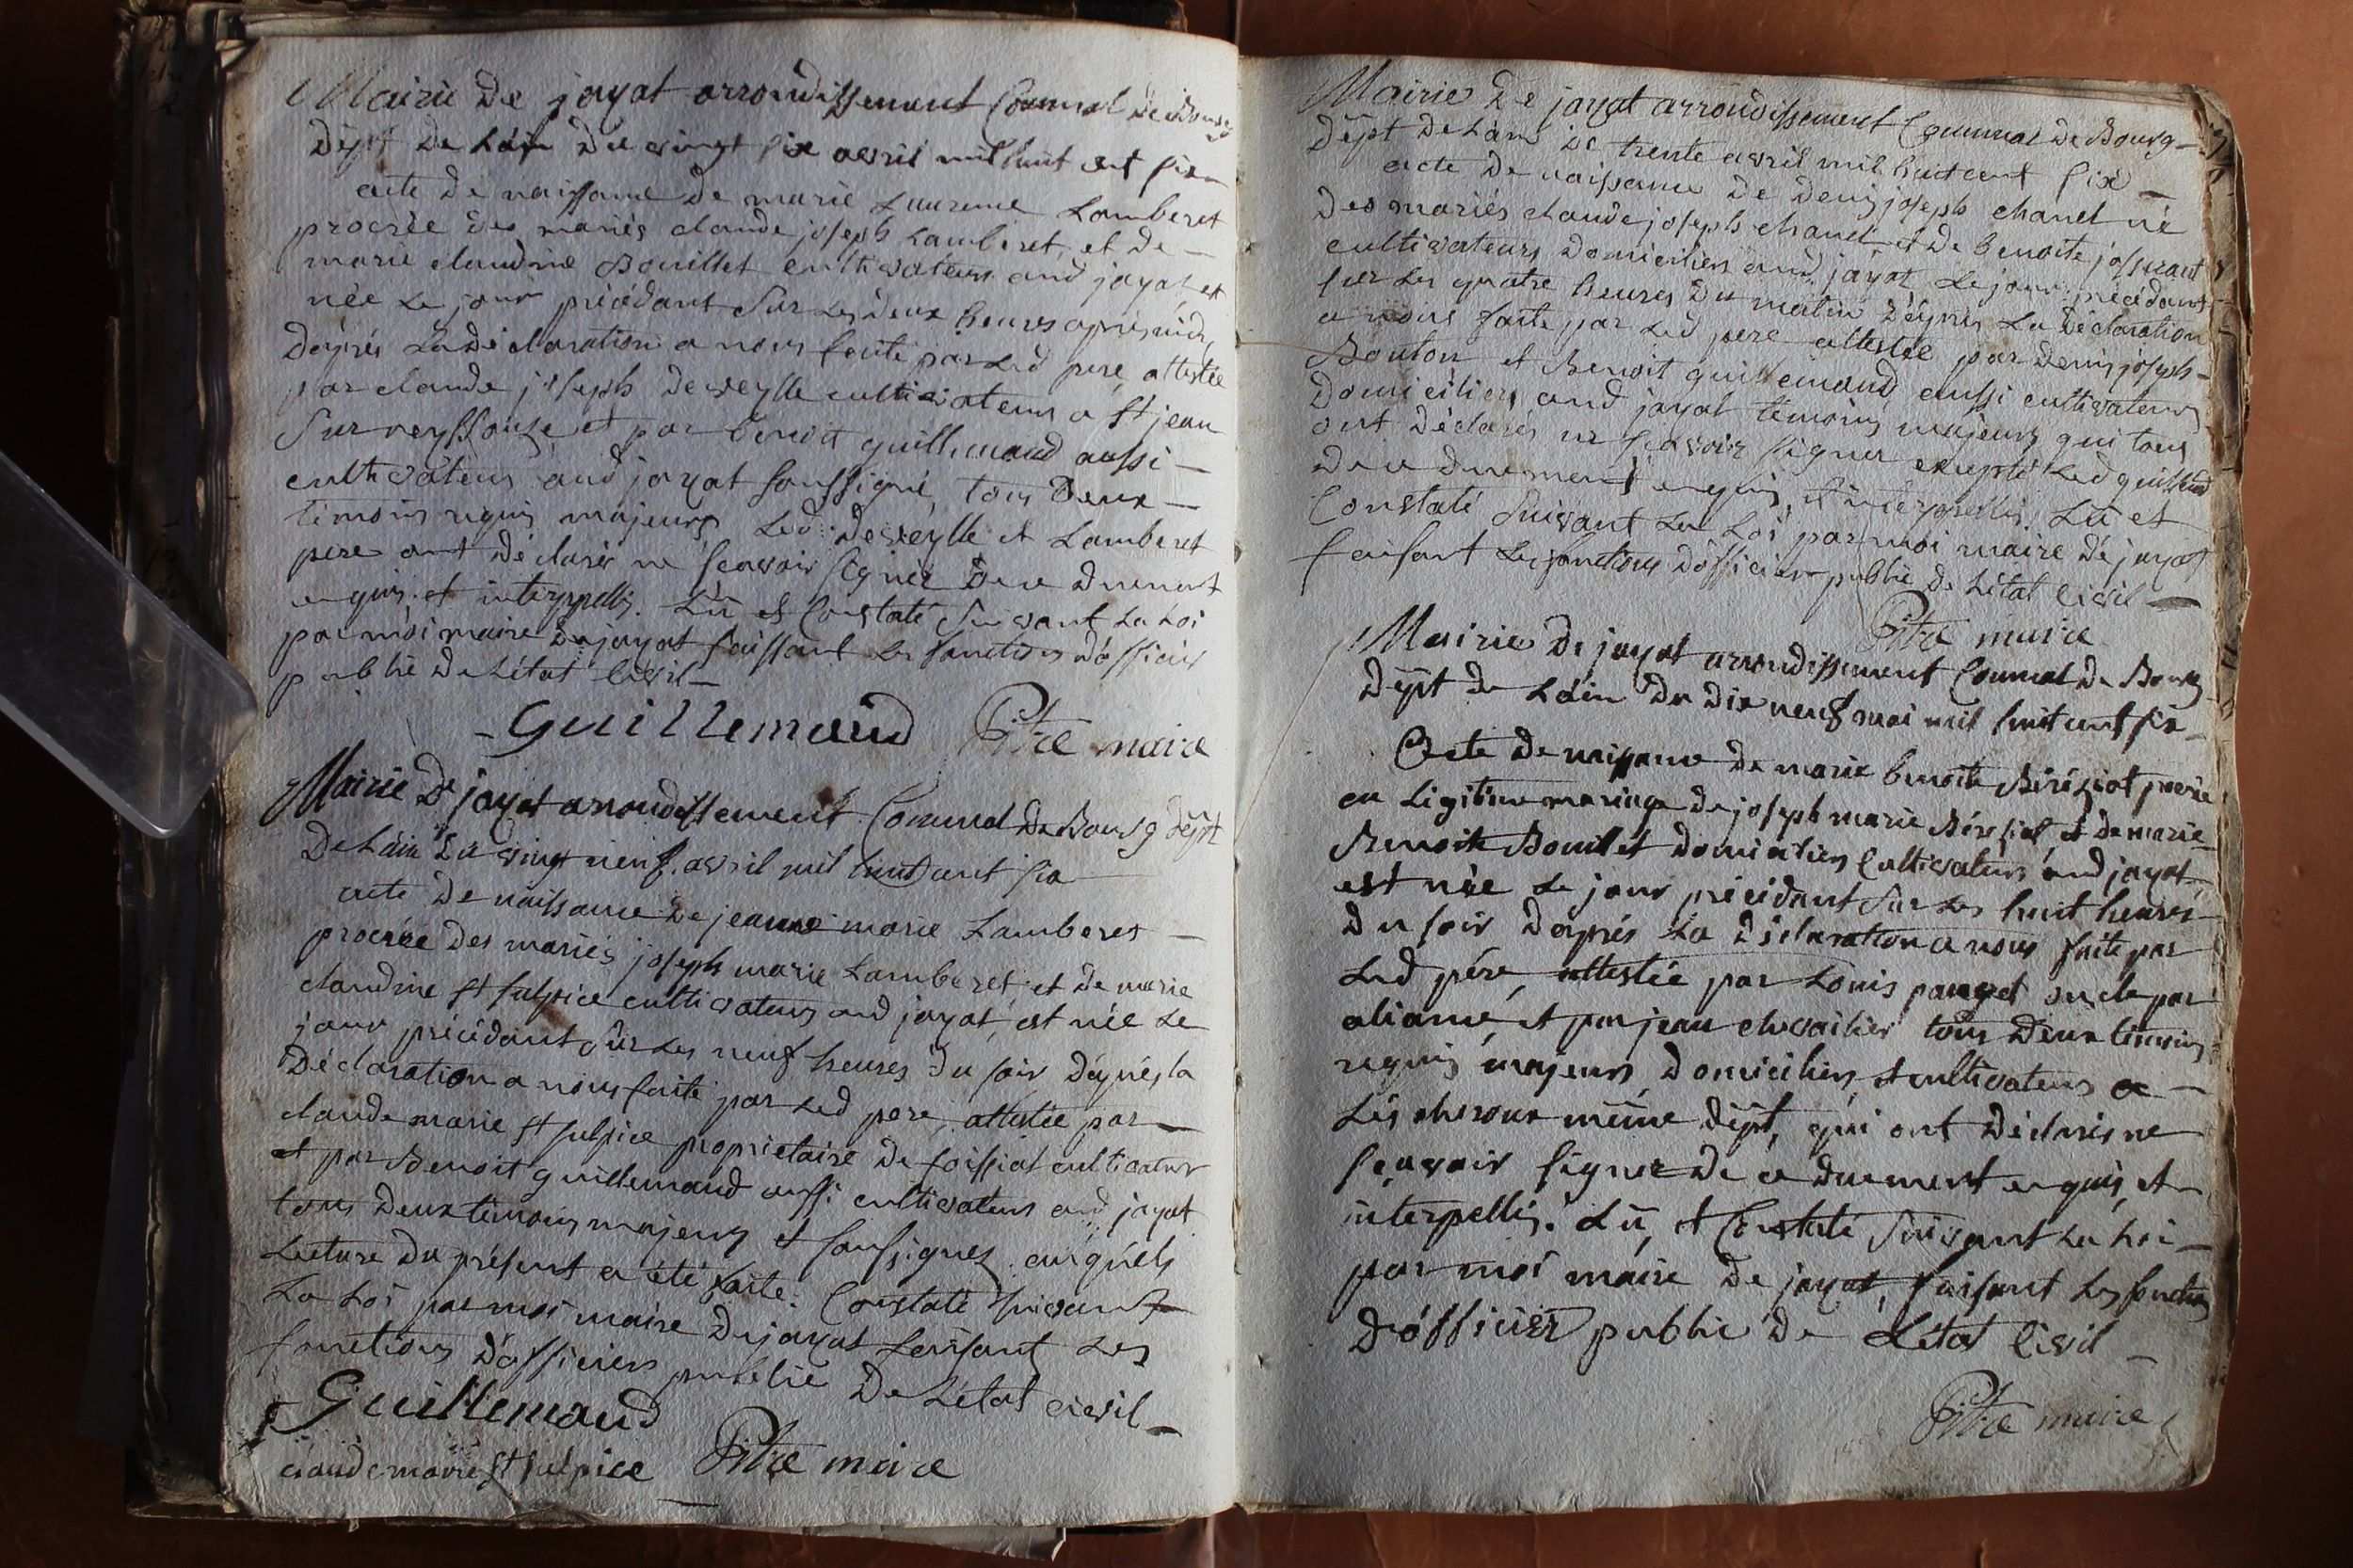 Mairie De jayat arrondissement Communal De Bourg
Dépt De Láin Du vingt six avril mil huit cent six
acte De naissance De marie Laurence Lamberet
procréé Des mariés claude joseph Lamberet, et De
marie claudine Bouillet cultivateurs aud jayat et
née Le jour précédant Sur Les Deux heures aprés midi,
Dáprés La Déclaration a nous faite par Led pere, attestée
par claude joseph Deveylle cultivateur a St jean
Sur reyssouse et par benoit guillemaud aussi
cultivateur aud jayat soussigné, tous Deux
témoins requis majeurs, Led. Deveylle et Lamberet
pere ont Déclarés ne sçavoir signer De ce Duement
enquis et interppellés. Lû et Constaté Suivant La Loi
par moi maire De jayat faissant Les fonctions Dófficier
public De Létat Civil
Guillemaud Pitre maire
Mairie De jayat arrondissement Communal De Bourg Dépt
De Láin Du vingt neuf avril mil huit cent six
acte De naissance De jeanne marie Lamberet
procréée Des mariés joseph marie Lamberet, et De marie
claudine St sulpice cultivateurs aud jayat, est née Le
jour précédant Sur Les neuf heures Du soir Dáprés La
Déclaration a nous faite par Led pere, attestée par
claude marie St sulpice proprietaire De foissiat cultivateur
et par Benoit guillemaud aussi cultivateur aud jayat
tous Deux témoins majeurs et soussignez auxquéls
Lecture Du présent a été faite. Constaté suivant
La Loi par moi maire De jayat faisant Les
fonctions Dófficier public De Létat civil
Guillemaud
claude marie St sulpice Pitre maire
Mairie De jayat arrondissement Communal De Bourg
Dépt De Láin Le trente avril mil huit cent six
acte De naissance De Denis joseph chanel né
Des mariés claude joseph chanel et De benoite josserant
cultivateurs Domiciliés aud jayat Le jour précédant
sur Les quatre heures Du matin Dáprés La Déclaration
a nous faite par Led pere attestée par Denis joseph
Bouton et Benoit guillemaud, aussi cultivateurs
Domiciliés aud jayat témoins majeurs qui tous
ont Déclarés ne sçavoir signer excepté Led guillemaud
De ce Duement enquis, et interppellés. Lû et
Constaté Suivant La Loi par moi maire De jayat
faisant Les fonctions Dófficier public De Létat Civil
Pitre maire
Mairie De jayat arrondissement Communal De Bourg
Dépt De Láin Du Dix neuf mai mil huit cent six
Acte De naissance De marie benoite Béréziat procréé
en Légitime mariage De joseph marie Béréziat, et De marie
Benoite Bouillet Domiciliés Cultivateurs aud jayat,
est née Le jour précédant Sur Les huit heures
Du soir Dáprés La Déclaration a nous faite par
Led pére, attestée par Louis pauget oncle par
aliance, et par jean chevailier tous Deux témoins
requis majeurs Domiciliés, et cultivateurs a
Lés cheroux même Dépt, qui ont Déclarés ne
sçavoir signer De ce Duement enquis, et
interpellés. Lû, et Constaté Suivant La Loi
par moi maire De jayat, faisant Les fonctions
Dófficier public De Létat Civil
Pitre maire